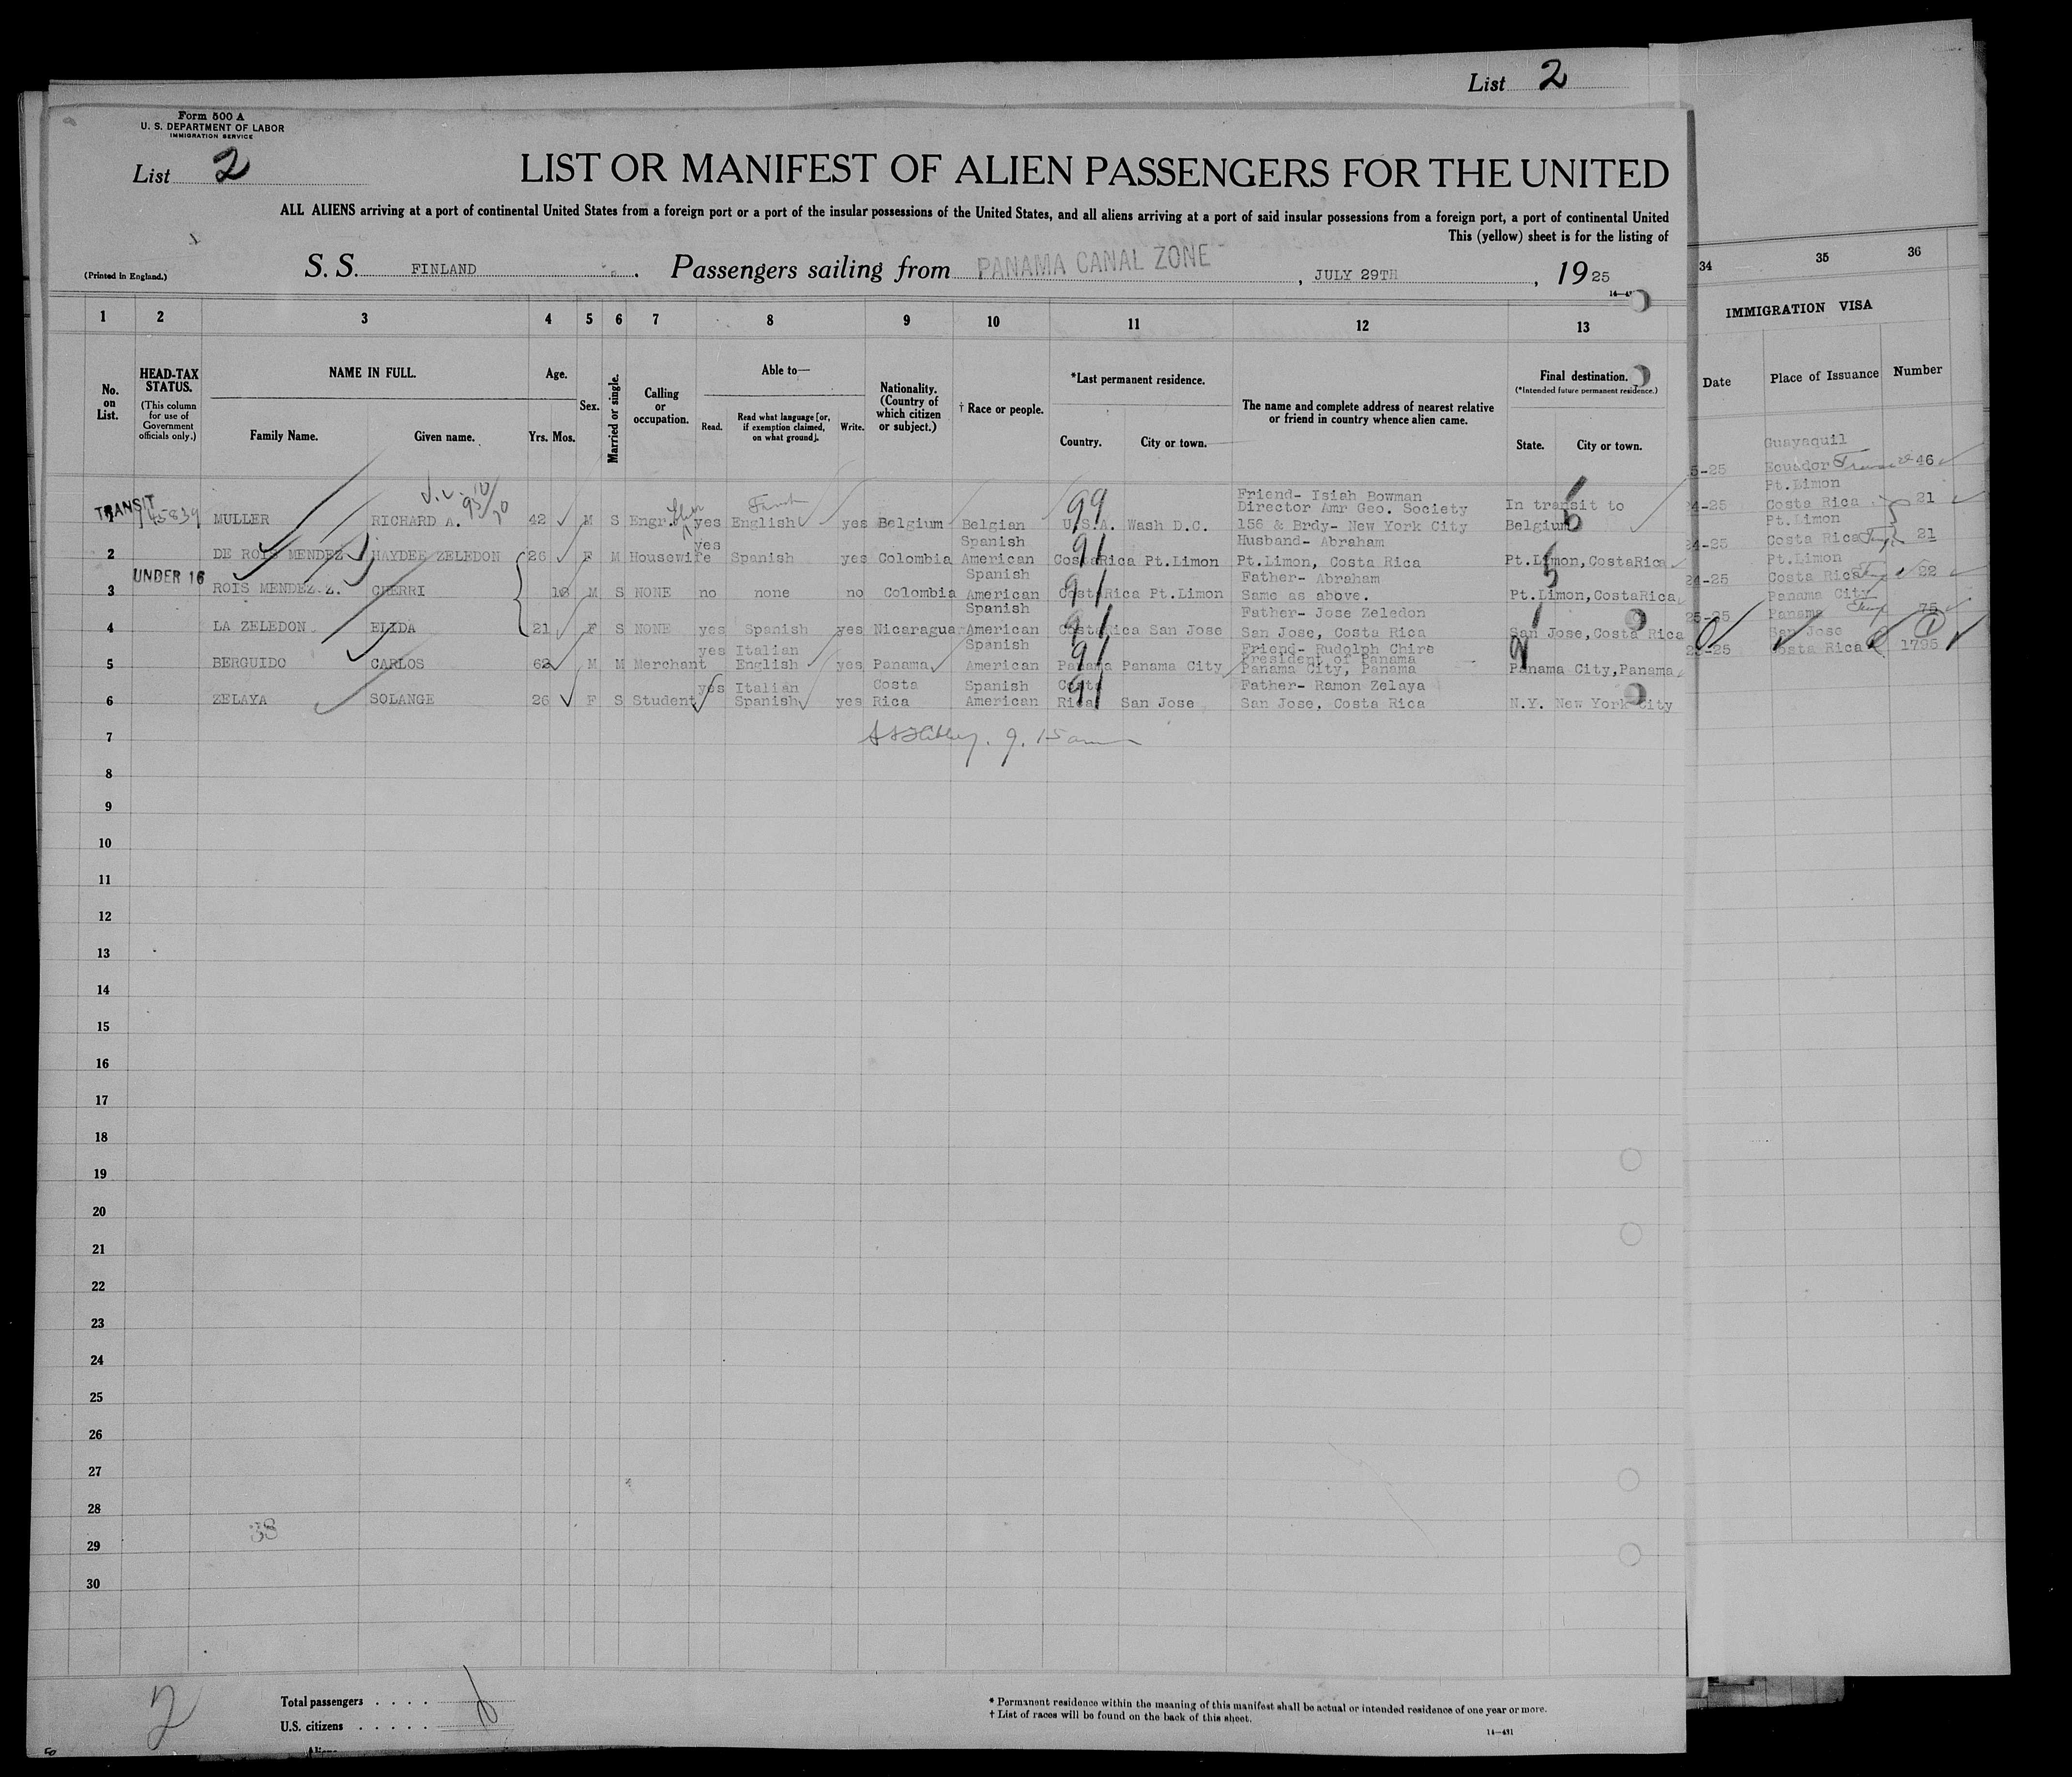 List 2
Form 500 A
U. S. DEPARTMENT OF LABOR
IMMIGRATION SERVICE
List 2
LIST OR MANIFEST OF ALIEN PASSENGERS FOR THE UNITED
ALL ALIENS arriving at a port of continental United States from a foreign port or a port of the insular possessions of the United States, and all aliens arriving at a port of said insular possessions from a foreign port, a port of continental United
This (yellow) sheet is for the listing of
(Printed in England.)
S. S. FINLAND . Passengers sailing from PANAMA CANAL ZONE , JULY 29TH , 19 25
1 2 3 4 5 6 7 8 9 10 11 12 13
34 35 36
IMMIGRATION VISA
Date Place of Issuance Number
No. on List.
HEAD-TAX STATUS.
(This column for use of Government officials only.)
NAME IN FULL.
Family Name. Given name.
Age.
Yrs. Mos.
Sex.
Married or single.
Calling or occupation.
Able to—
Read.
Read what language [or, if exemption claimed, on what ground].
Write.
Nationality. (Country of which citizen or subject.)
† Race or people.
*Last permanent residence.
Country. City or town.
The name and complete address of nearest relative or friend in country whence alien came.
Final destination.
(*Intended future permanent residence.)
State. City or town.
TRANSIT
Friend- Isiah Bowman
Director Amr Geo. Society In transit to
MULLER RICHARD A. 42 M S Engr. yes English yes Belgium Belgian U.S.A. Wash D.C. 156 & Brdy- New York City Belgium
99 6
yes Spanish Husband- Abraham
2 DE ROIS MENDEZ HAYDEE ZELEDON 26 F M Housewife Spanish yes Colombia American CostaRica Pt.Limon Pt.Limon, Costa Rica Pt.Limon,CostaRica
91 5
UNDER 16
Spanish Father- Abraham
3 ROIS MENDEZ Z. CHERRI 18 M S NONE no none no Colombia American CostaRica Pt.Limon Same as above. Pt.Limon,CostaRica
91
Spanish Father- Jose Zeledon
4 LA ZELEDON ELIDA 21 F S NONE yes Spanish yes Nicaragua American CostaRica San Jose San Jose, Costa Rica San Jose,Costa Rica
91
yes Italian Spanish Friend- Rudolph Chire
President of Panama
5 BERGUIDO CARLOS 62 M M Merchant English yes Panama American Panama Panama City Panama City, Panama Panama City,Panama
91
yes Italian Costa Spanish Costa Father- Ramon Zelaya
6 ZELAYA SOLANGE 26 F S Student Spanish yes Rica American Rica San Jose San Jose, Costa Rica N.Y. New York City
91
Guayaquil
5-25 Ecuador 46
Pt.Limon
24-25 Costa Rica 21
Pt.Limon
24-25 Costa Rica 21
Pt.Limon
24-25 Costa Rica 22
Panama City
25-25 Panama 75
San Jose
-25 Costa Rica 1795
7
8
9
10
11
12
13
14
15
16
17
18
19
20
21
22
23
24
25
26
27
28
38
29
30
2
Total passengers . . . .
U.S. citizens . . . . .
* Permanent residence within the meaning of this manifest shall be actual or intended residence of one year or more.
† List of races will be found on the back of this sheet.
14—431